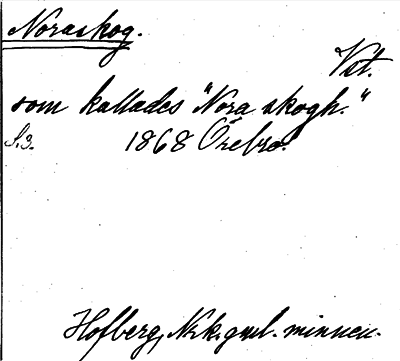 Noraskog.
Vst.
som kallades "Nora skogh."
S.3. 1868 Örebro.
Hofberg, Nrk. gml. minnen.